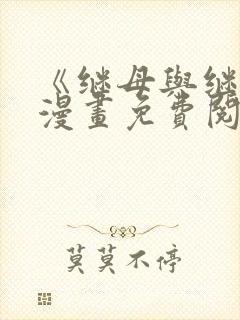 《继母與继
漫畫免費閱
莫莫不停